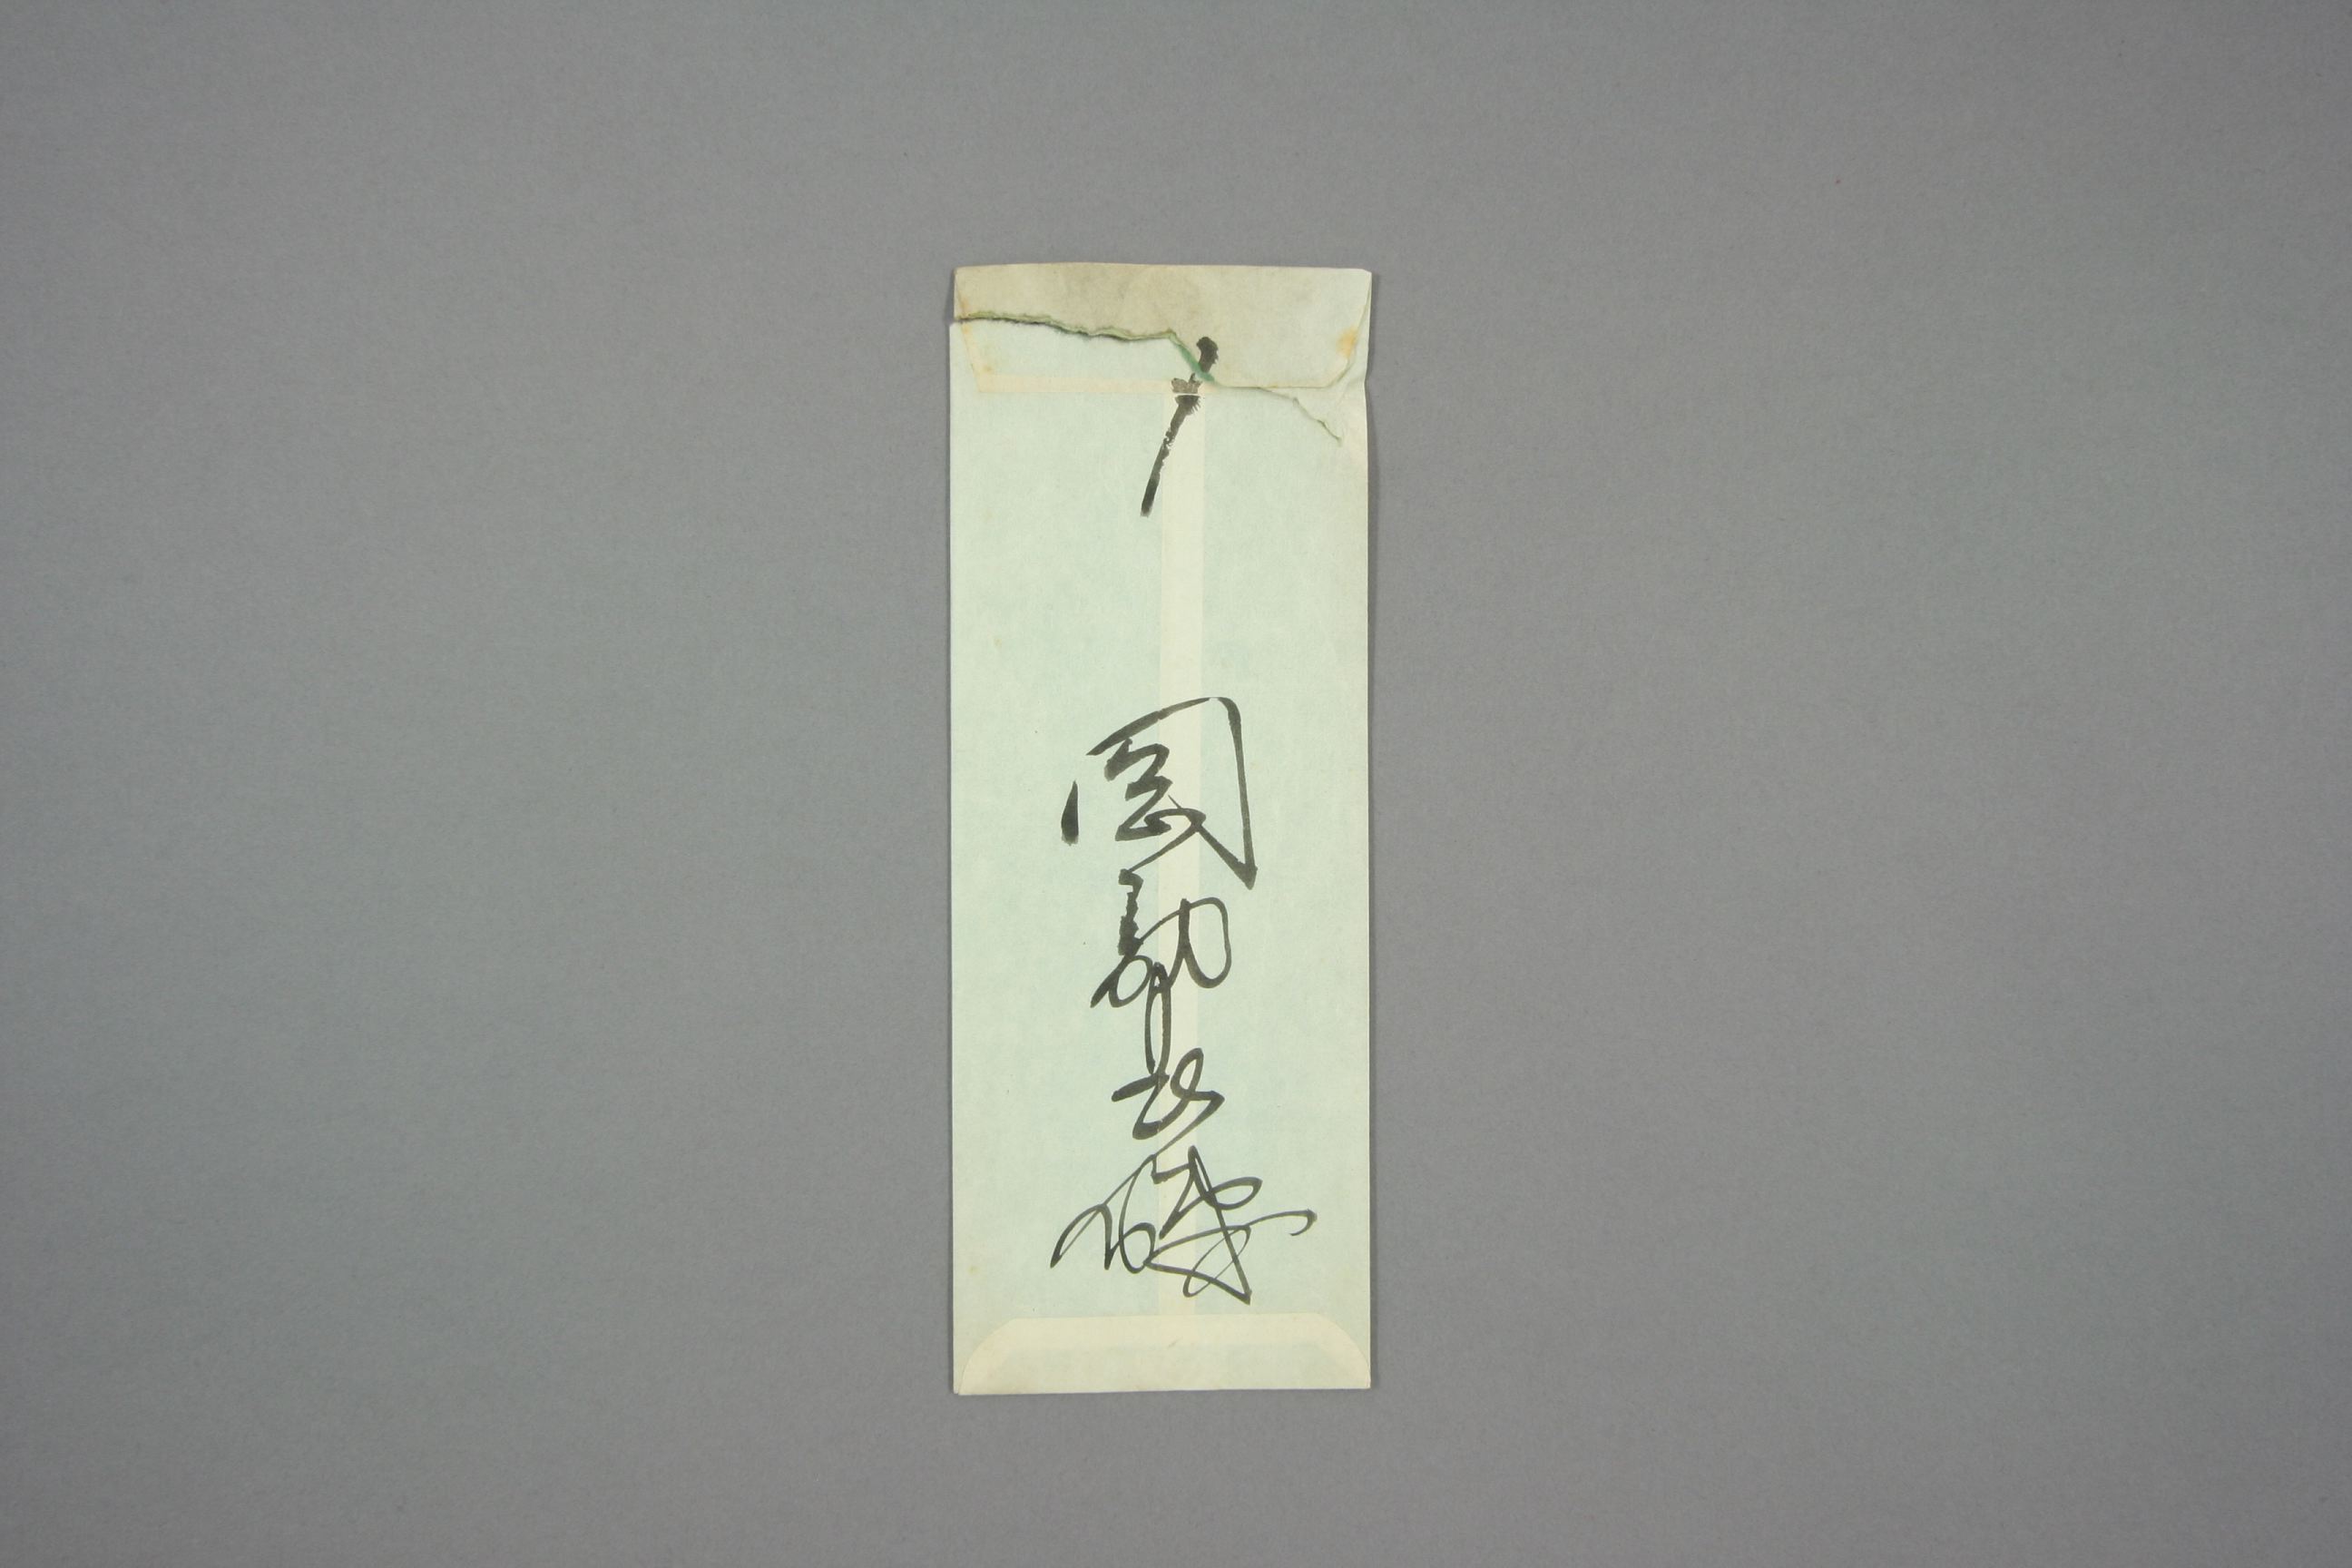 岡部長職